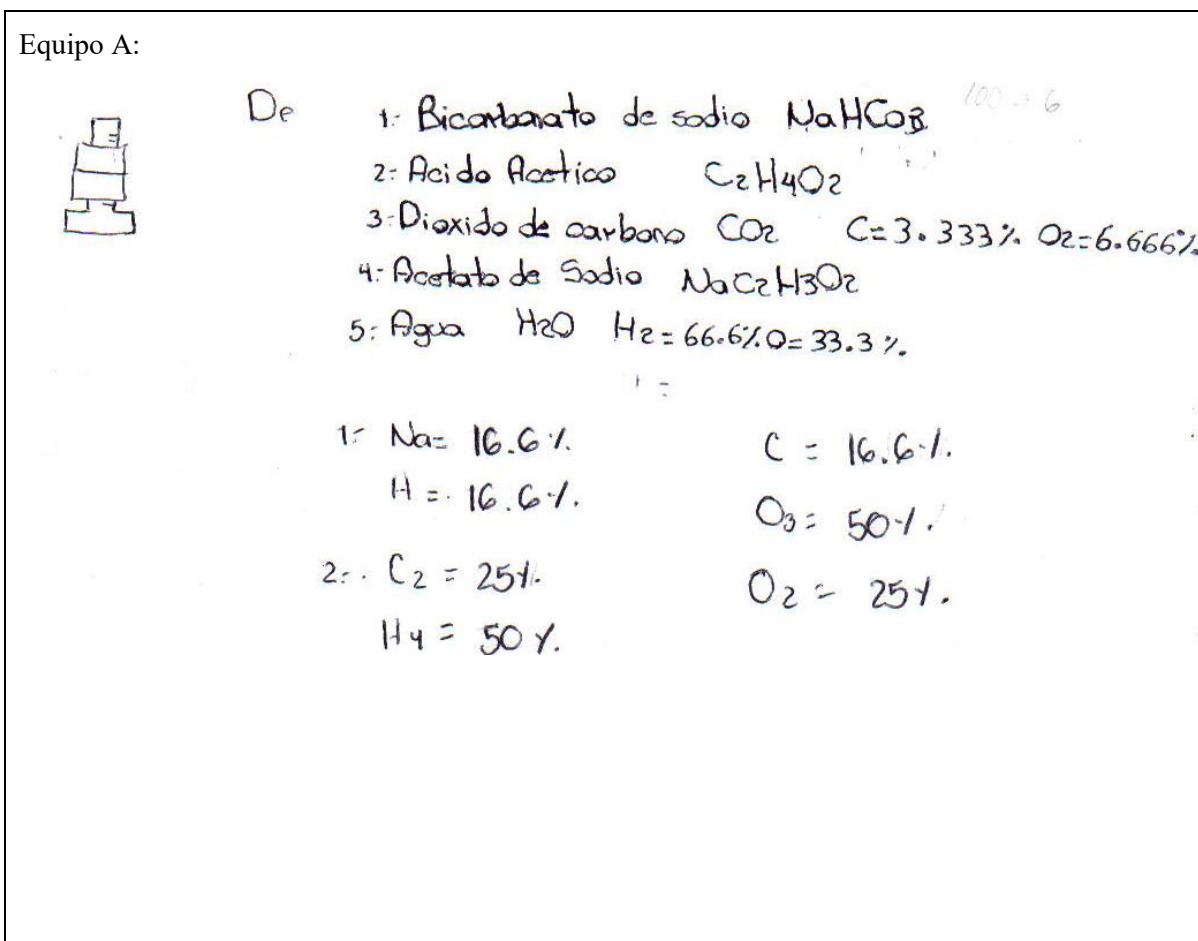 Equipo A:
De 1:- Bicarbonato de sodio NaHCO3 100 = 6
2:- Acido Acetico C2H4O2
3:- Dioxido de carbono CO2 C=3.333% O2=6.666%
4:- Acetato de Sodio NaC2H3O2
5:- Agua H2O H2=66.6% O=33.3%.
1:- Na= 16.6% C = 16.6%.
H = 16.6%. O3= 50%.
2:- C2 = 25%. O2 = 25%.
H4 = 50%.